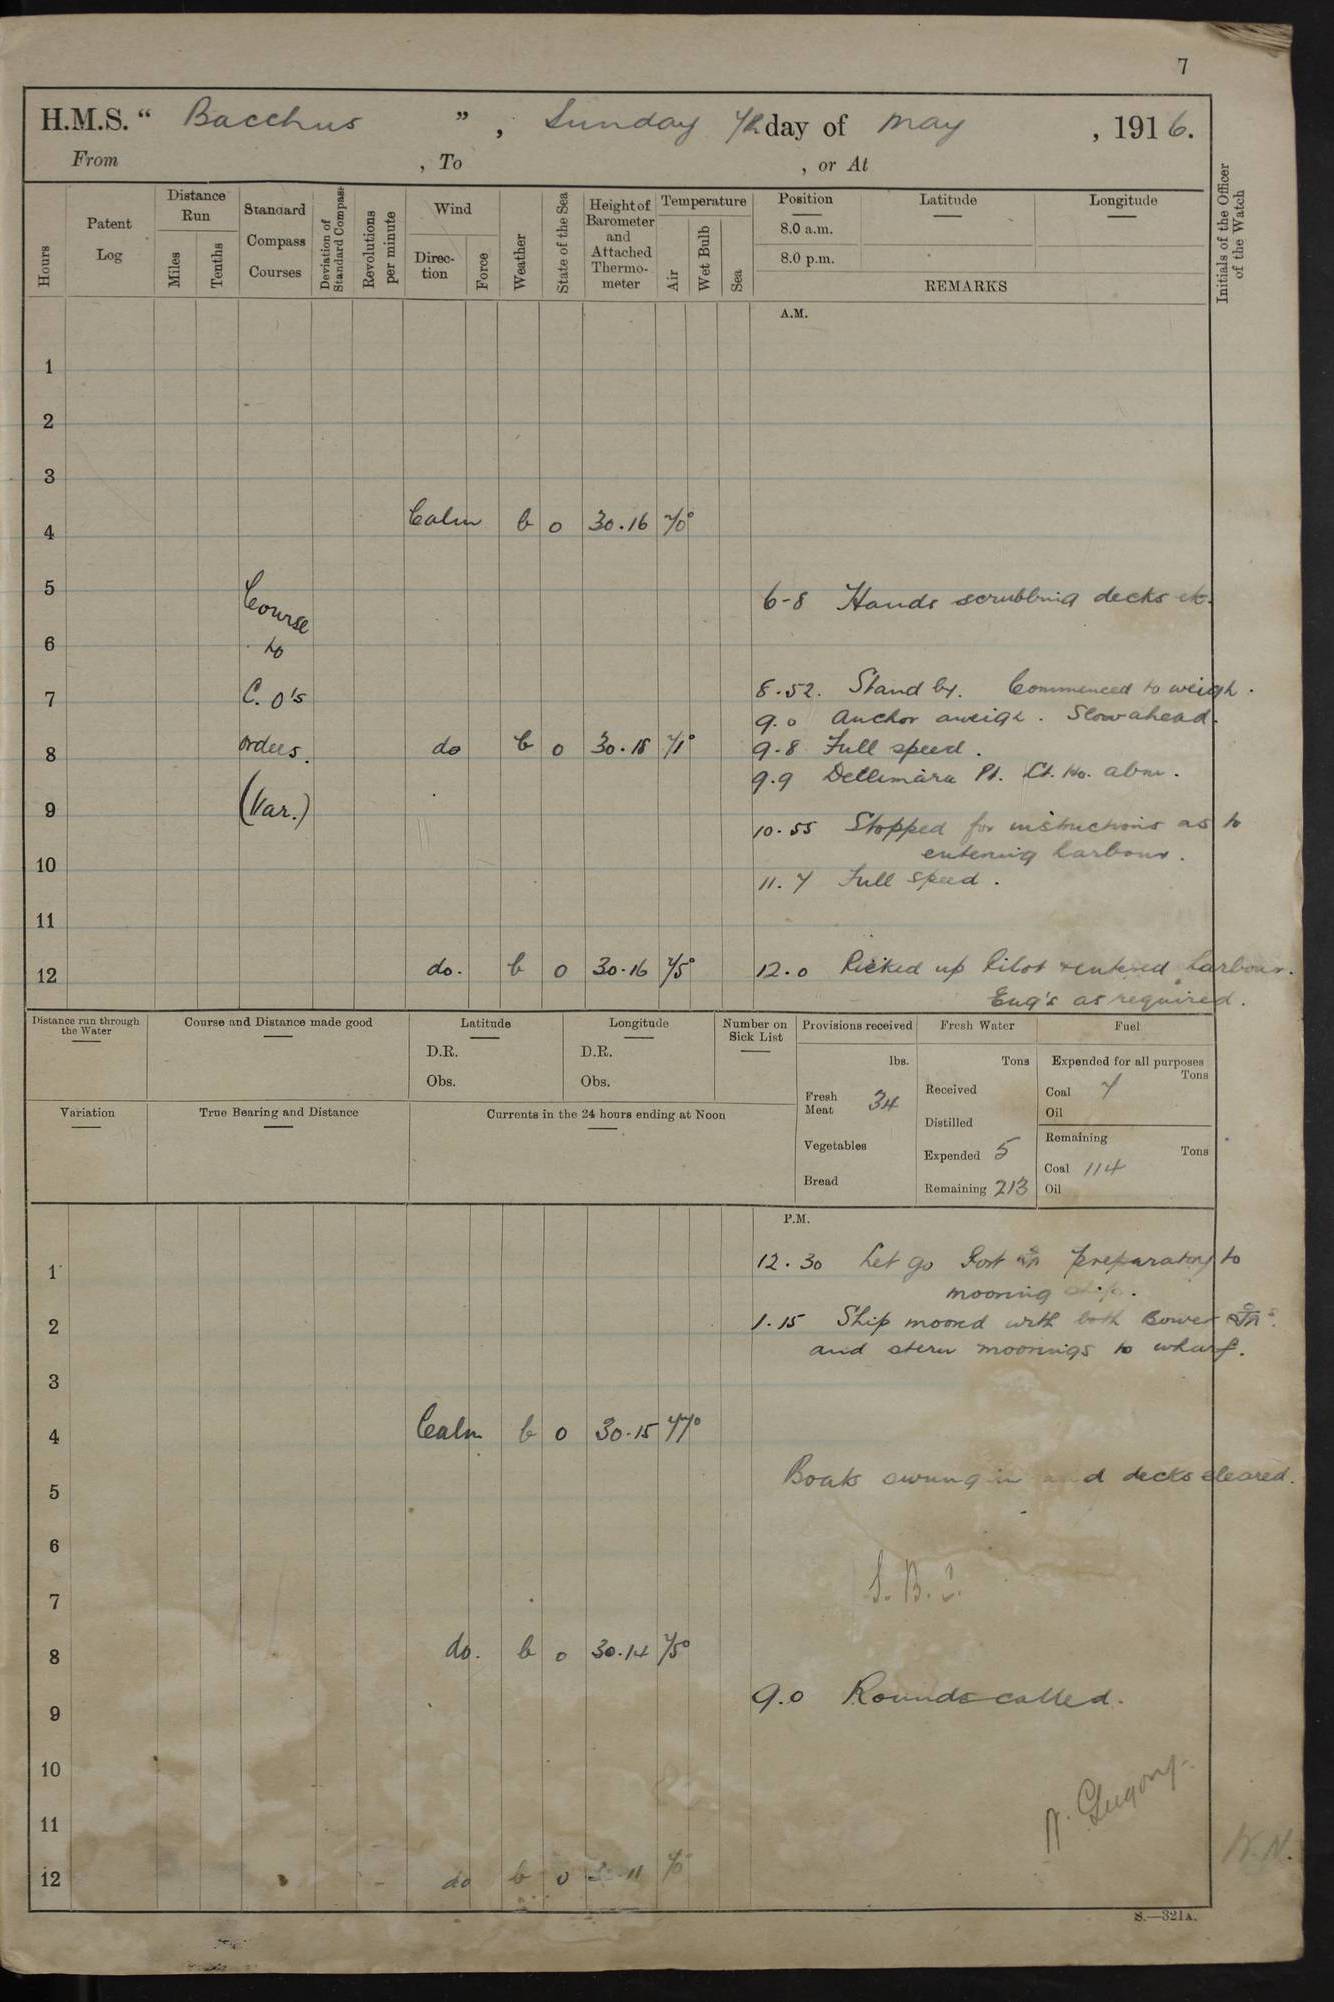 7
H.M.S. " Bacchus ", Sunday 7th day of May, 1916.
From , To , or At
Hours
Patent Log
Distance Run
Miles
Tenths
Standard Compass Courses
Deviation of Standard Compass
Revolutions per minute
Wind
Direction
Force
Weather
State of the Sea
Height of Barometer and Attached Thermometer
Temperature
Air
Wet Bulb
Sea
Position
8.0 a.m.
8.0 p.m.
Latitude
Longitude
REMARKS
Initials of the Officer of the Watch
A.M.
1
2
3
4 Calm b 0 30.16 70°
5 Course 6-8 Hands scrubbing decks etc.
6 to
7 C.O's 8.52. Stand by. Commenced to weigh.
9.0 Anchor aweigh. Slow ahead.
8 orders. do b 0 30.18 71° 9.8 Full speed.
9.9 Dellimara Pt. Lt. Ho. abm.
9 (Var.)
10.55 Stopped for instructions as to
10 entering harbour.
11.7 Full speed.
11
12 do. b 0 30.16 75° 12.0 Picked up Pilot & entered harbour.
Eng's as required.
Distance run through the Water
Course and Distance made good
Latitude
D.R.
Obs.
Longitude
D.R.
Obs.
Number on Sick List
Provisions received
lbs.
Fresh Meat 34
Vegetables
Bread
Fresh Water
Tons
Received
Distilled
Expended 5
Remaining 213
Fuel
Expended for all purposes
Tons
Coal 7
Oil
Remaining
Tons
Coal 114
Oil
Variation
True Bearing and Distance
Currents in the 24 hours ending at Noon
P.M.
12.30 Let go Port preparatory to
1 mooring ship.
2 1.15 Ship moored with both Bower
and stern moorings to wharf.
3
4 Calm b 0 30.15 77°
Boats swung in and decks cleared.
5
6
7
8 do. b 0 30.14 75°
9.0 Rounds called.
9
10
11
12 do b 0
S.—321A.